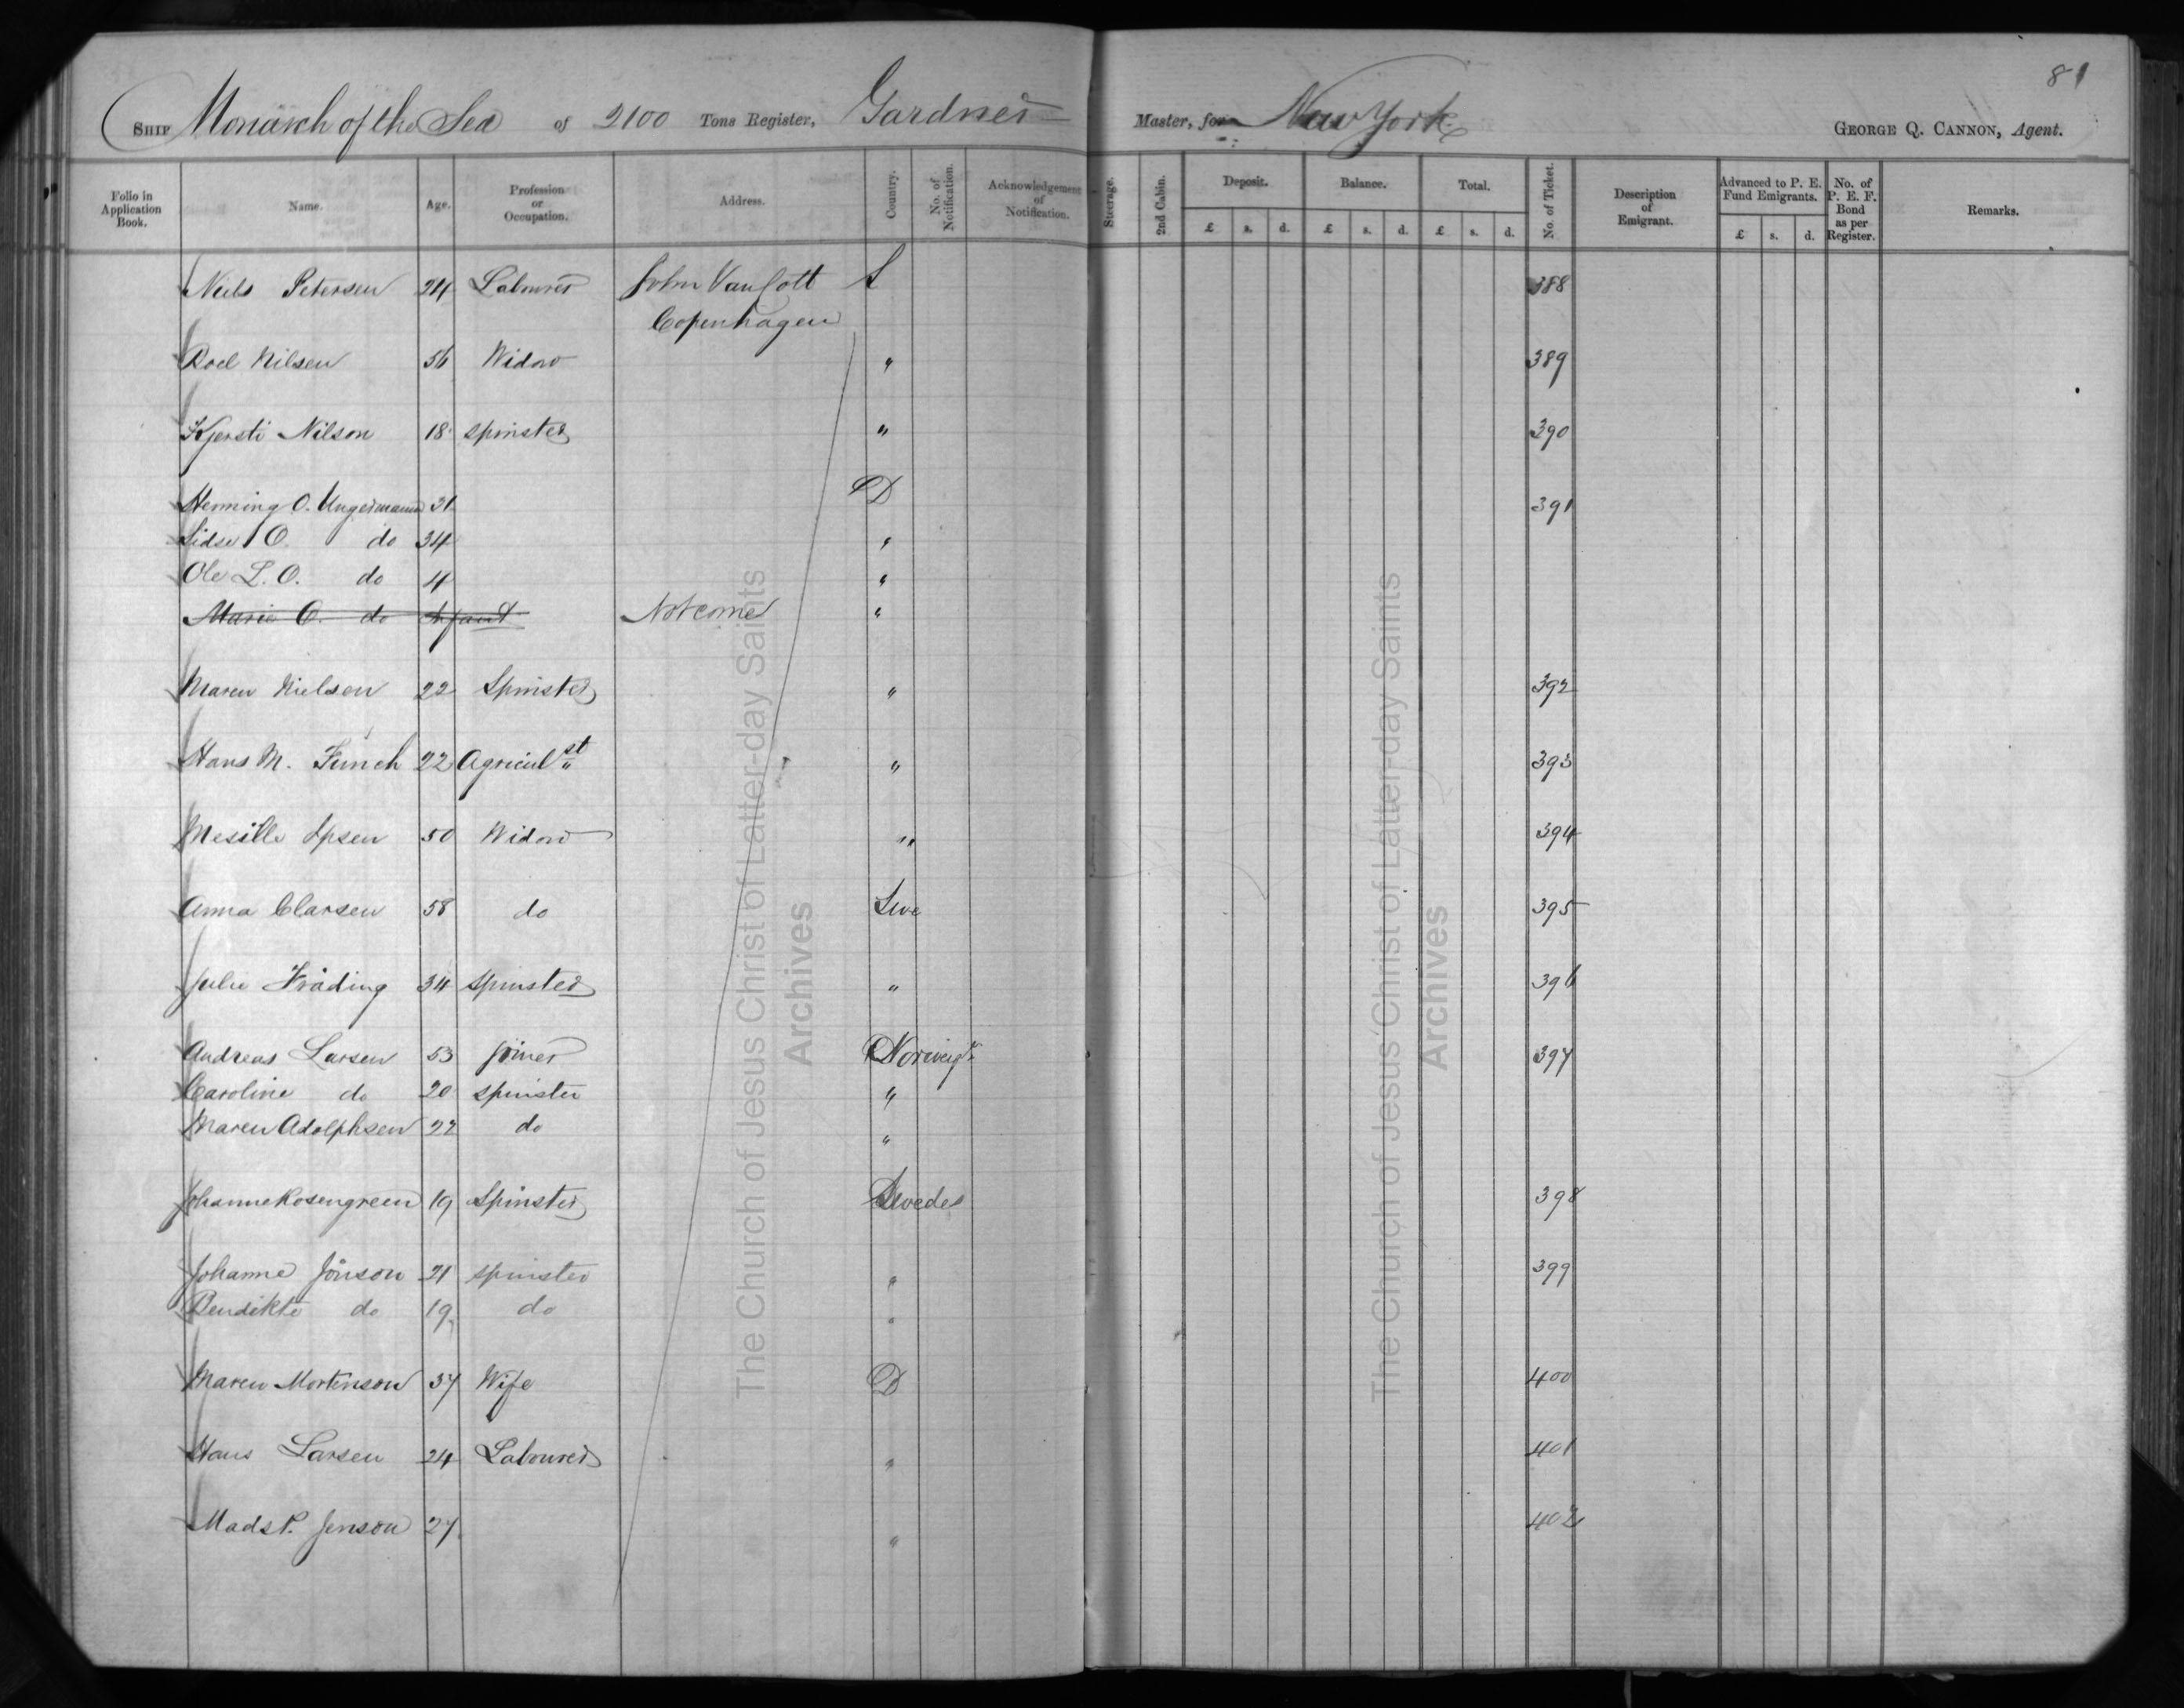 81
SHIP Monarch of the Sea of 2100 Tons Register, Gardner Master, for New York GEORGE Q. CANNON, Agent.
Folio in Application Book. Name. Age. Profession or Occupation. Address. Country. No. of Notification. Acknowledgement of Notification. Steerage. 2nd Cabin. Deposit. Balance. Total. No. of Ticket. Description of Emigrant. Advanced to P. E. Fund Emigrants. No. of P. E. F. Bond as per Register. Remarks.
£ s. d. £ s. d. £ s. d. £ s. d.
Niels Petersen 24 Labourer John Van Cott S 388
Copenhagen
Boel Nilsen 56 Widow " 389
Kjersti Nilson 18 spinster " 390
Henning O. Ungermann 31 D 391
Sidse O. do 34 "
Ole L. O. do 4 "
Marie O. do Infant Not come "
Maren Nielsen 22 Spinster " 392
Hans M. Funch 22 Agricul st " 393
Mesille Ipsen 50 Widow " 394
Anna Clarsen 58 do Swe 395
Julie Fråding 34 spinster " 396
Andreas Larsen 53 joiner Norweign 397
Caroline do 20 spinster "
Maren Adolphsen 22 do "
Johanne Rosengreen 19 Spinster Swedes 398
Johanne Jönson 21 spinster " 399
Bendikte do 19 do "
Maren Mortenson 37 Wife D 400
Hans Larsen 24 Labourer " 401
Mads P. Jenson 27 " 402
The Church of Jesus Christ of Latter-day Saints
Archives
The Church of Jesus Christ of Latter-day Saints
Archives